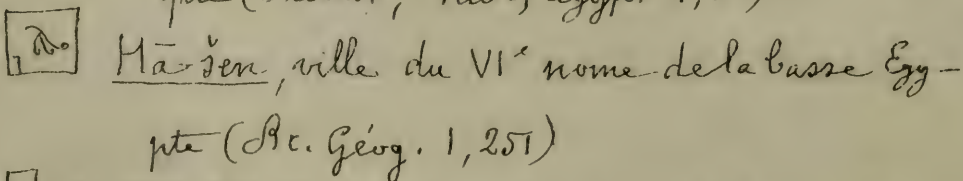 Hā-šen, ville du VIᵉ nome de la basse Egy-
pte (Rc. Géog. 1, 251)